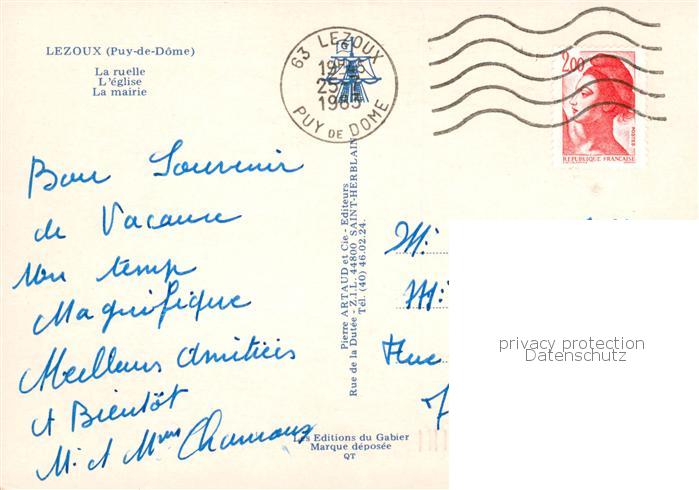 LEZOUX (Puy-de-Dôme)
La ruelle
L'église
La mairie
63 LEZOUX
25
PUY DE DOME
2,00
POSTES
REPUBLIQUE FRANÇAISE
Bon Souvenir
de Vacance
un temp
Magnifique
Meilleurs Amitiés
et Bientôt
M. et Mme
Pierre ARTAUD et Cie - Editeurs
Rue de la Dutée - Z.I.L. 44800 SAINT-HERBLAIN
Tél. (40) 46.02.24.
Les Editions du Gabier
Marque déposée
QT
M.
Rue
7
privacy protection
Datenschutz